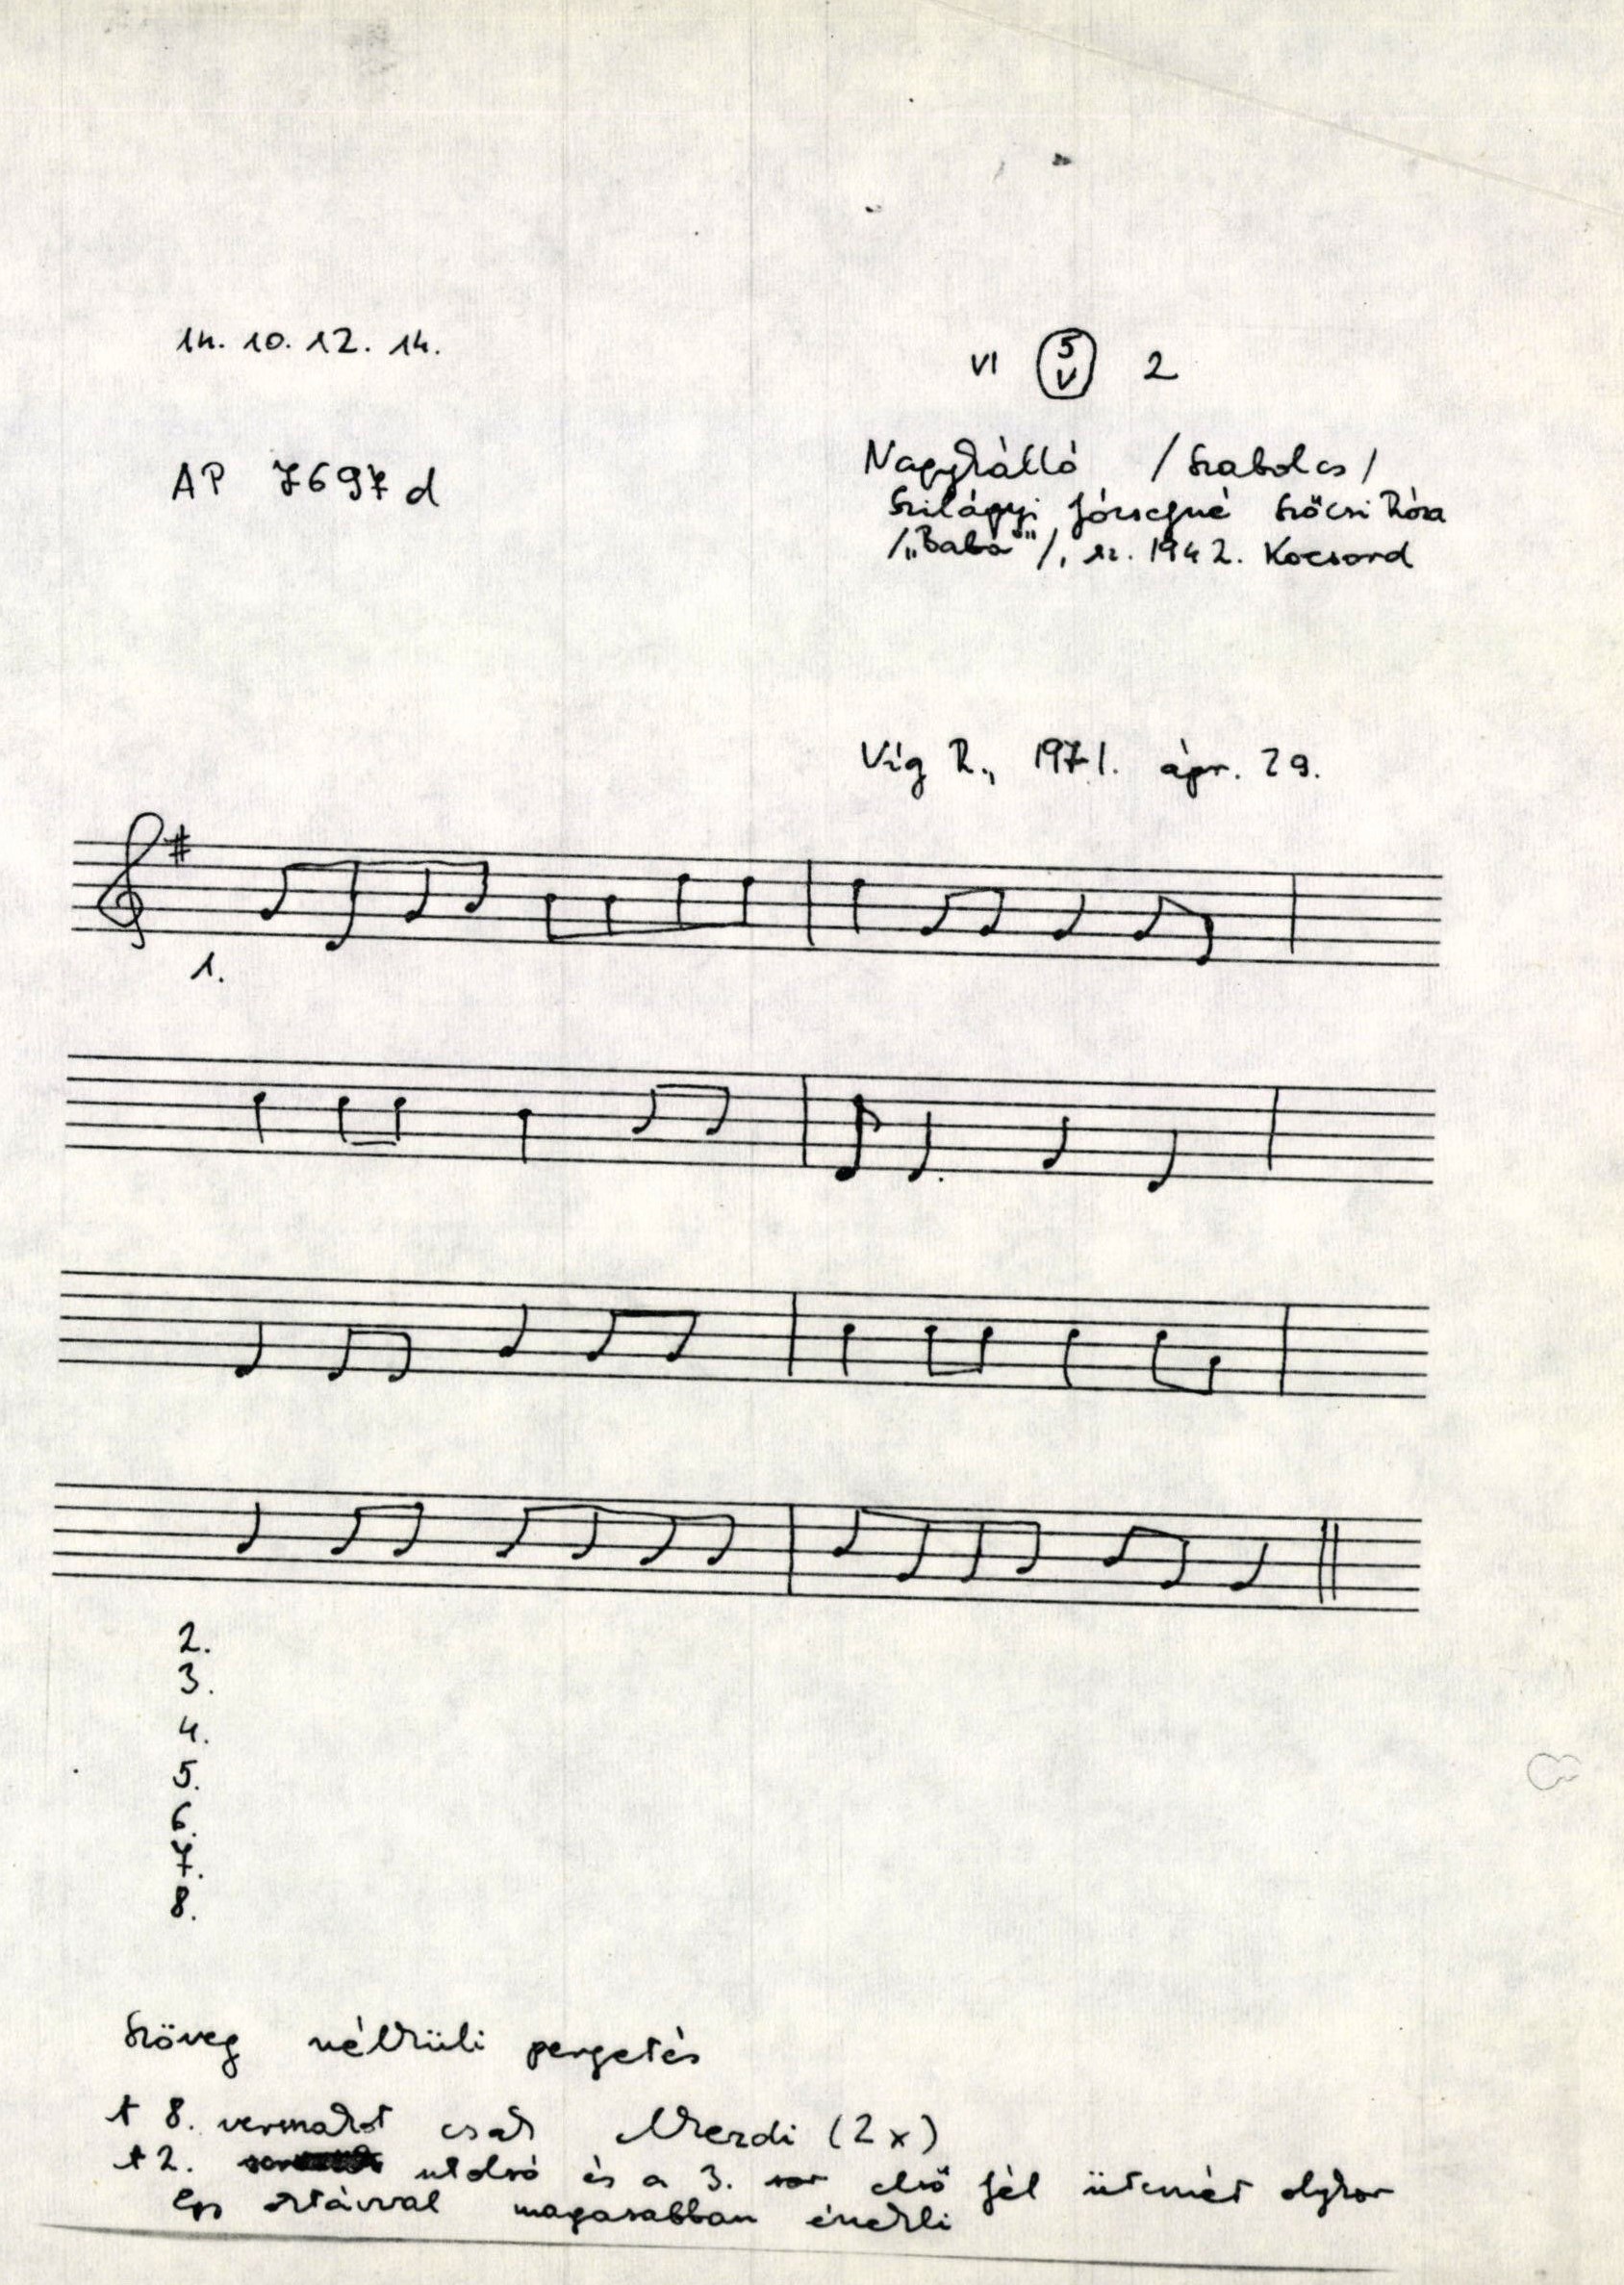 14. 10. 12. 14.
VI 5 2
V
AP 7697 d
Nagykálló /Szabolcs/
Szilágyi Józsefné Szőcsi Róza
/„Baba"/, sz. 1942. Kocsord
Víg R., 1971. ápr. 29.
1.
2.
3.
4.
5.
6.
7.
8.
Szöveg nélküli pergetés
A 8. versszakot csak elkezdi (2x)
A 2. utolsó és a 3. sor első fél ütemét olykor
egy oktávval magasabban énekli